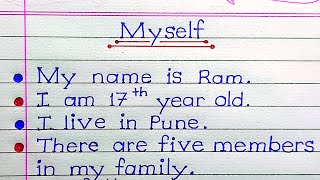 Myself
My name is Ram.
I am 17th year old.
I live in Pune.
There are five members
in my family.